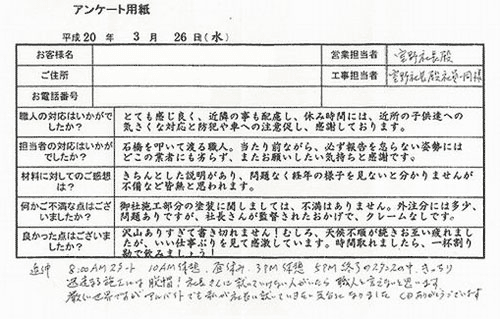 アンケート用紙
平成20年 3月 26日(水)
お客様名 営業担当者 室野社長殿
ご住所 工事担当者 室野社長殿
お電話番号
職人の対応はいかがで とても感じ良く、近隣の事も配慮し、休み時間には、近所の子供達への
したか? 気さくな対応と防犯や車への注意促し、感謝しております。
担当者の対応はいかが 石橋を叩いて渡る職人。当たり前ながら、必ず報告を怠らない姿勢には
でしたか? どこの業者にも劣らず、またお願いしたい気持ちと感謝です。
材料に対してのご感想 きちんとした説明があり、問題なく経年の様子を見ないと分かりませんが
は? 不備など皆無と思われます。
何かご不満な点はござ 御社施工部分の塗装に関しましては、不満はありません。外注分には多少、
いましたか? 問題ありですが、社長さんが監督されたおかげで、クレームなしです。
良かった点はございま 沢山ありすぎて書き切れません!むしろ、天候不順が続きお互い疲れまし
したか? たが、いい仕事ぶりを見て感激しています。時間取れましたら、一杯割
り勘で飲みましょう!
追伸 8:00AMスタート 10AM休憩、昼休み、3PM休憩 5PM終了のスタンスの中、きっちり